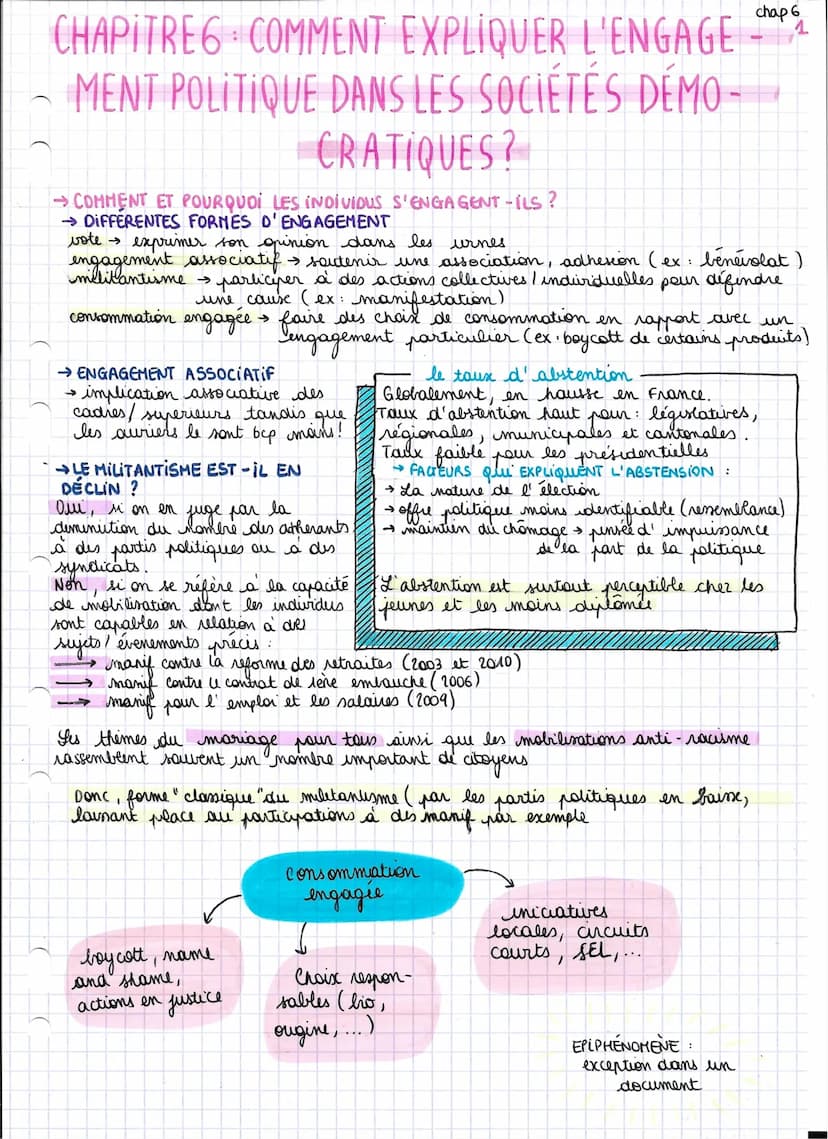 chap 6
1
CHAPITRE 6 : COMMENT EXPLIQUER L'ENGAGE -
MENT POLITIQUE DANS LES SOCIÉTÉS DÉMO -
CRATIQUES ?
→ COMMENT ET POURQUOI LES INDIVIDUS S'ENGAGENT-ILS ?
→ DIFFÉRENTES FORMES D'ENGAGEMENT
vote → exprimer son opinion dans les urnes
engagement associatif → soutenir une association, adhesion (ex : bénévolat)
militantisme → participer à des actions collectives / individuelles pour défendre
une cause (ex : manifestation)
consommation engagée → faire des choix de consommation en rapport avec un
engagement particulier (ex : boycott de certains produits)
→ ENGAGEMENT ASSOCIATIF
→ implication associative des
cadres / superieurs tandis que
les ouvriers le sont bcp moins !
→ LE MILITANTISME EST-IL EN
DÉCLIN ?
Oui, si on en juge par la
diminution du nombre des adhérants
à des partis politiques ou à des
syndicats.
Non, si on se réfère à la capacité
de mobilisation dont les individus
sont capables en relation à des
sujets / évenements précis :
→ manif contre la reforme des retraites (2003 et 2010)
→ manif contre le contrat de 1ère embauche (2006)
→ manif pour l'emploi et les salaires (2009)
le taux d'abstention
Globalement, en hausse en France.
Taux d'abstention haut pour : législatives,
régionales, municipales et cantonales.
Taux faible pour les présidentielles
→ FACTEURS QUI EXPLIQUENT L'ABSTENSION :
→ La nature de l'élection
→ offre politique moins identifiable (ressemblance)
→ maintien du chômage → pensée d'impuissance
de la part de la politique
L'abstention est surtout perceptible chez les
jeunes et les moins diplômés
Les thèmes du mariage pour tous ainsi que les mobilisations anti-racisme
rassemblent souvent un nombre important de citoyens
Donc, forme "classique" du militantisme (par les partis politiques en baisse,
laissant place au participations à des manif par exemple
consommation
engagée
boycott, name
and shame,
actions en justice
Choix respon-
sables (bio,
origine, ...)
iniciatives
locales, circuits
courts, SEL, ...
EPIPHÉNOMÈNE :
exception dans un
document